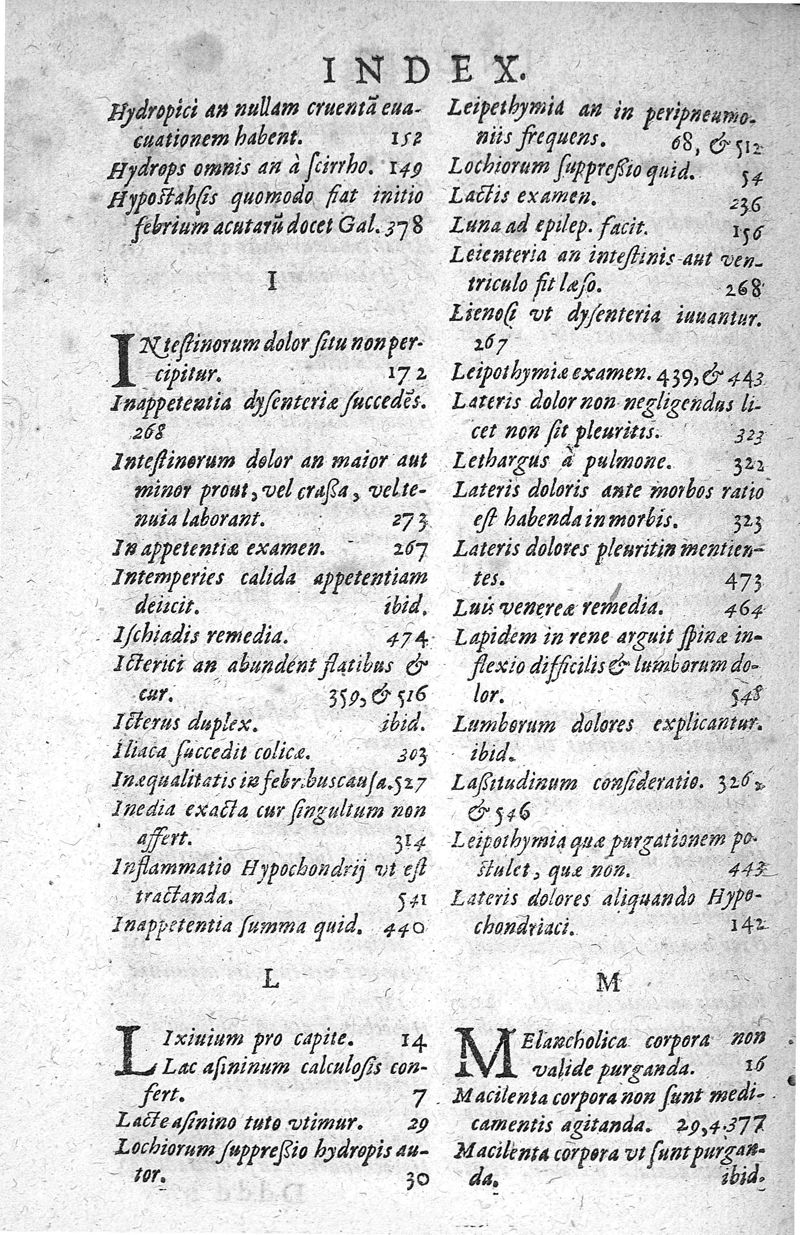 INDEX.
Hydropici an nullam cruentā eua-
cuationem habent. 152
Hydrops omnis an à ſcirrho. 149
Hypoſtahſis quomodo fiat initio
febrium acutarū docet Gal. 378
I
INteſtinorum dolor ſitu non per-
cipitur. 172
Inappetentia dyſenteriæ ſuccedēs.
268
Inteſtinorum dolor an maior aut
minor prout, vel craſſa, vel te-
nuia laborant. 273
Inappetentiæ examen. 267
Intemperies calida appetentiam
deiicit. ibid.
Iſchiadis remedia. 474
Icterici an abundent flatibus &
cur. 359, & 516
Icterus duplex. ibid.
Iliaca ſuccedit colicæ. 303
Inæqualitatis in febribus cauſa. 527
Inedia exacta cur ſingultum non
affert. 314
Inflammatio Hypochondrij vt eſt
tractanda. 541
Inappetentia ſumma quid. 440
L
LIxiuium pro capite. 14
Lac aſininum calculoſis con-
fert. 7
Lacte aſinino tuto vtimur. 29
Lochiorum ſuppreſſio hydropis au-
tor. 30
Leipethymia an in peripneumo-
niis frequens. 68, & 512
Lochiorum ſuppreſſio quid. 54
Lactis examen. 236
Luna ad epilep. facit. 156
Leienteria an inteſtinis aut ven-
triculo fit læſo. 268
Lienoſi vt dyſenteria iuuantur.
267
Leipothymiæ examen. 439, & 443
Lateris dolor non negligendus li-
cet non ſit pleuritis. 323
Lethargus à pulmone. 322
Lateris doloris ante morbos ratio
eſt habenda in morbis. 323
Lateris dolores pleuritin mentien-
tes. 473
Luis venereæ remedia. 464
Lapidem in rene arguit ſpinæ in-
flexio difficilis & lumborum do-
lor. 548
Lumborum dolores explicantur.
ibid.
Laſſitudinum conſideratio. 326,
& 546
Leipothymia quæ purgationem po-
ſtulet, quæ non. 443
Lateris dolores aliquando Hypo-
chondriaci. 142
M
MElancholica corpora non
valide purganda. 16
Macilenta corpora non ſunt medi-
camentis agitanda. 29, 4. 377
Macilenta corpora vt ſunt purgan-
da. ibid.